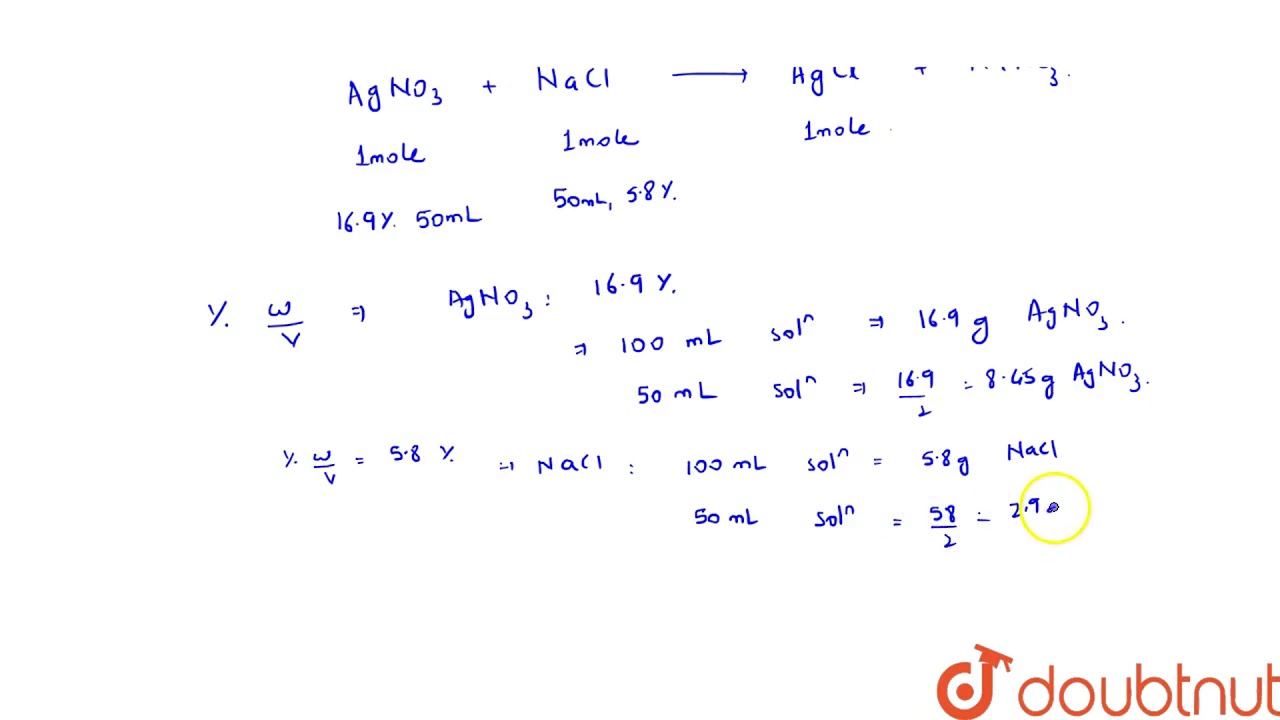 AgNO3 + NaCl → AgCl +
1mole 1mole 1mole
16.9%. 50mL 50mL, 5.8%.
% w/v ⇒ AgNO3: 16.9 %.
⇒ 100 mL solⁿ ⇒ 16.9 g AgNO3.
50 mL solⁿ ⇒ 16.9/2 = 8.45g AgNO3.
% w/v = 5.8 %. ⇒ NaCl : 100 mL solⁿ = 5.8g NaCl
50 mL solⁿ = 58/2 = 2.9
doubtnut